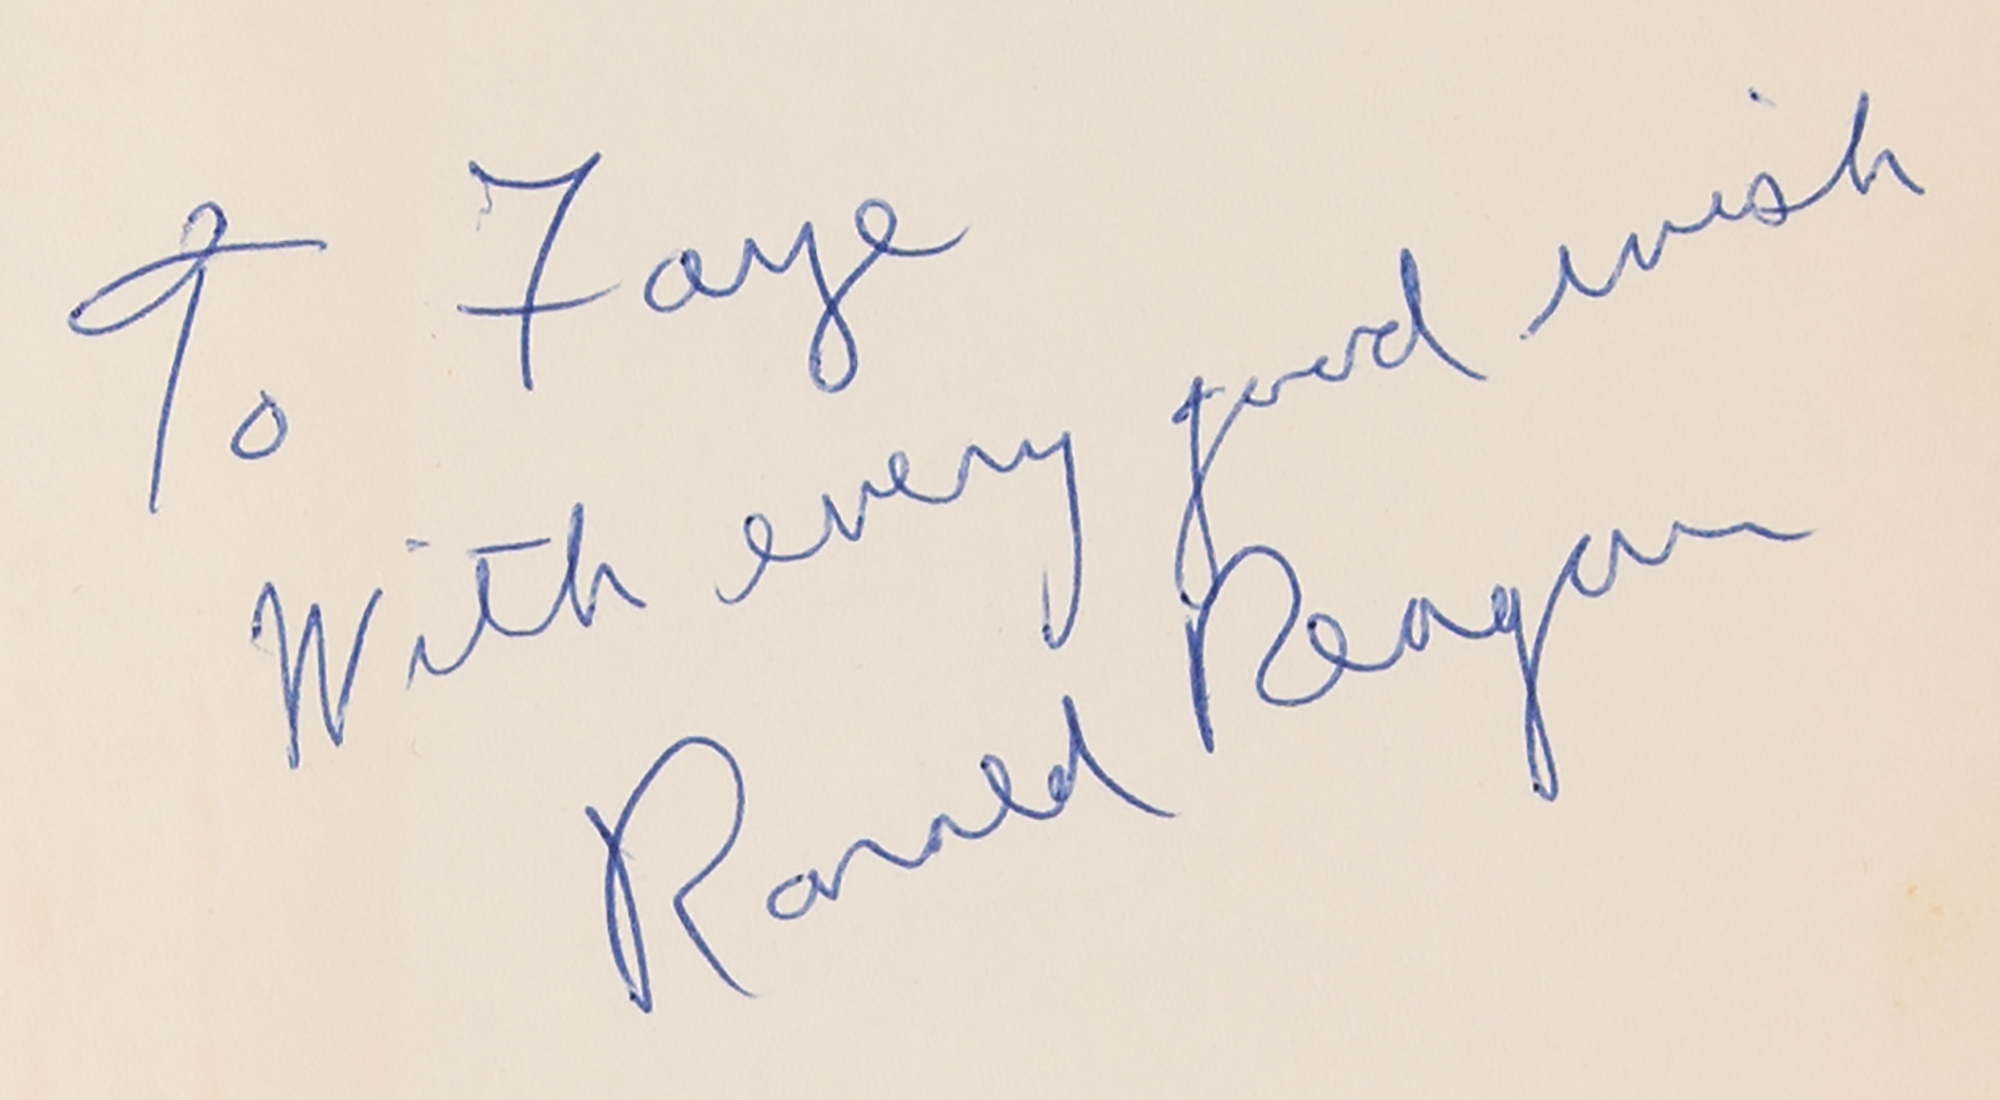 To Faye
With every good wish
Ronald Reagan